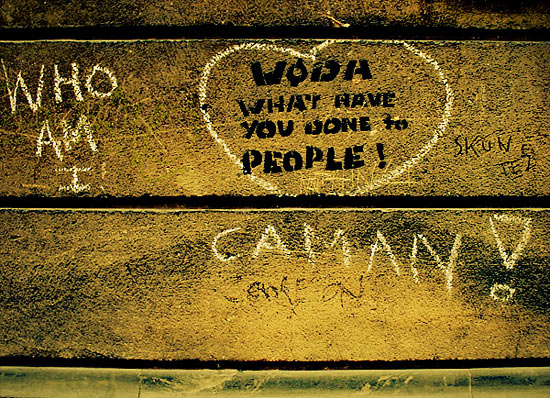 WHO
AM
I
WODA
WHAT HAVE
YOU DONE to
PEOPLE!
SKUNE
CAMAN!
COME ON